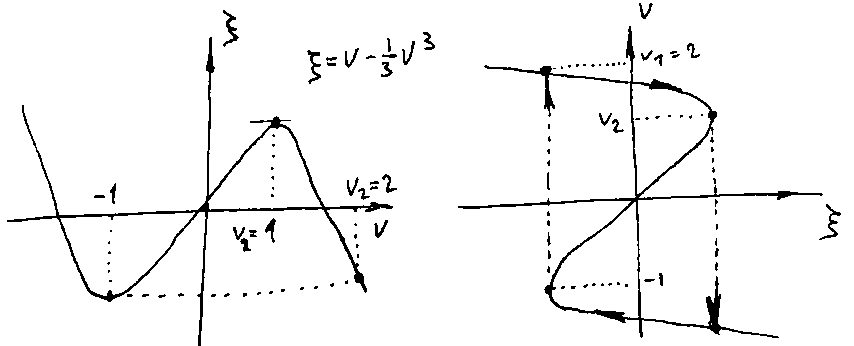 ξ
ξ = v - 1/3 v³
-1
v₂ = 2
v₂ = 1
v
v
v₁ = 2
v₂
-1
ξ